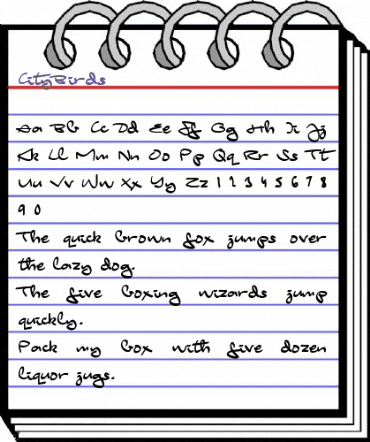 CityBirds
Aa Bb Cc Dd Ee Ff Gg Hh Ii Jj
Kk Ll Mm Nn Oo Pp Qq Rr Ss Tt
Uu Vv Ww Xx Yy Zz 1 2 3 4 5 6 7 8
9 0
The quick brown fox jumps over
the lazy dog.
The five boxing wizards jump
quickly.
Pack my box with five dozen
liquor jugs.